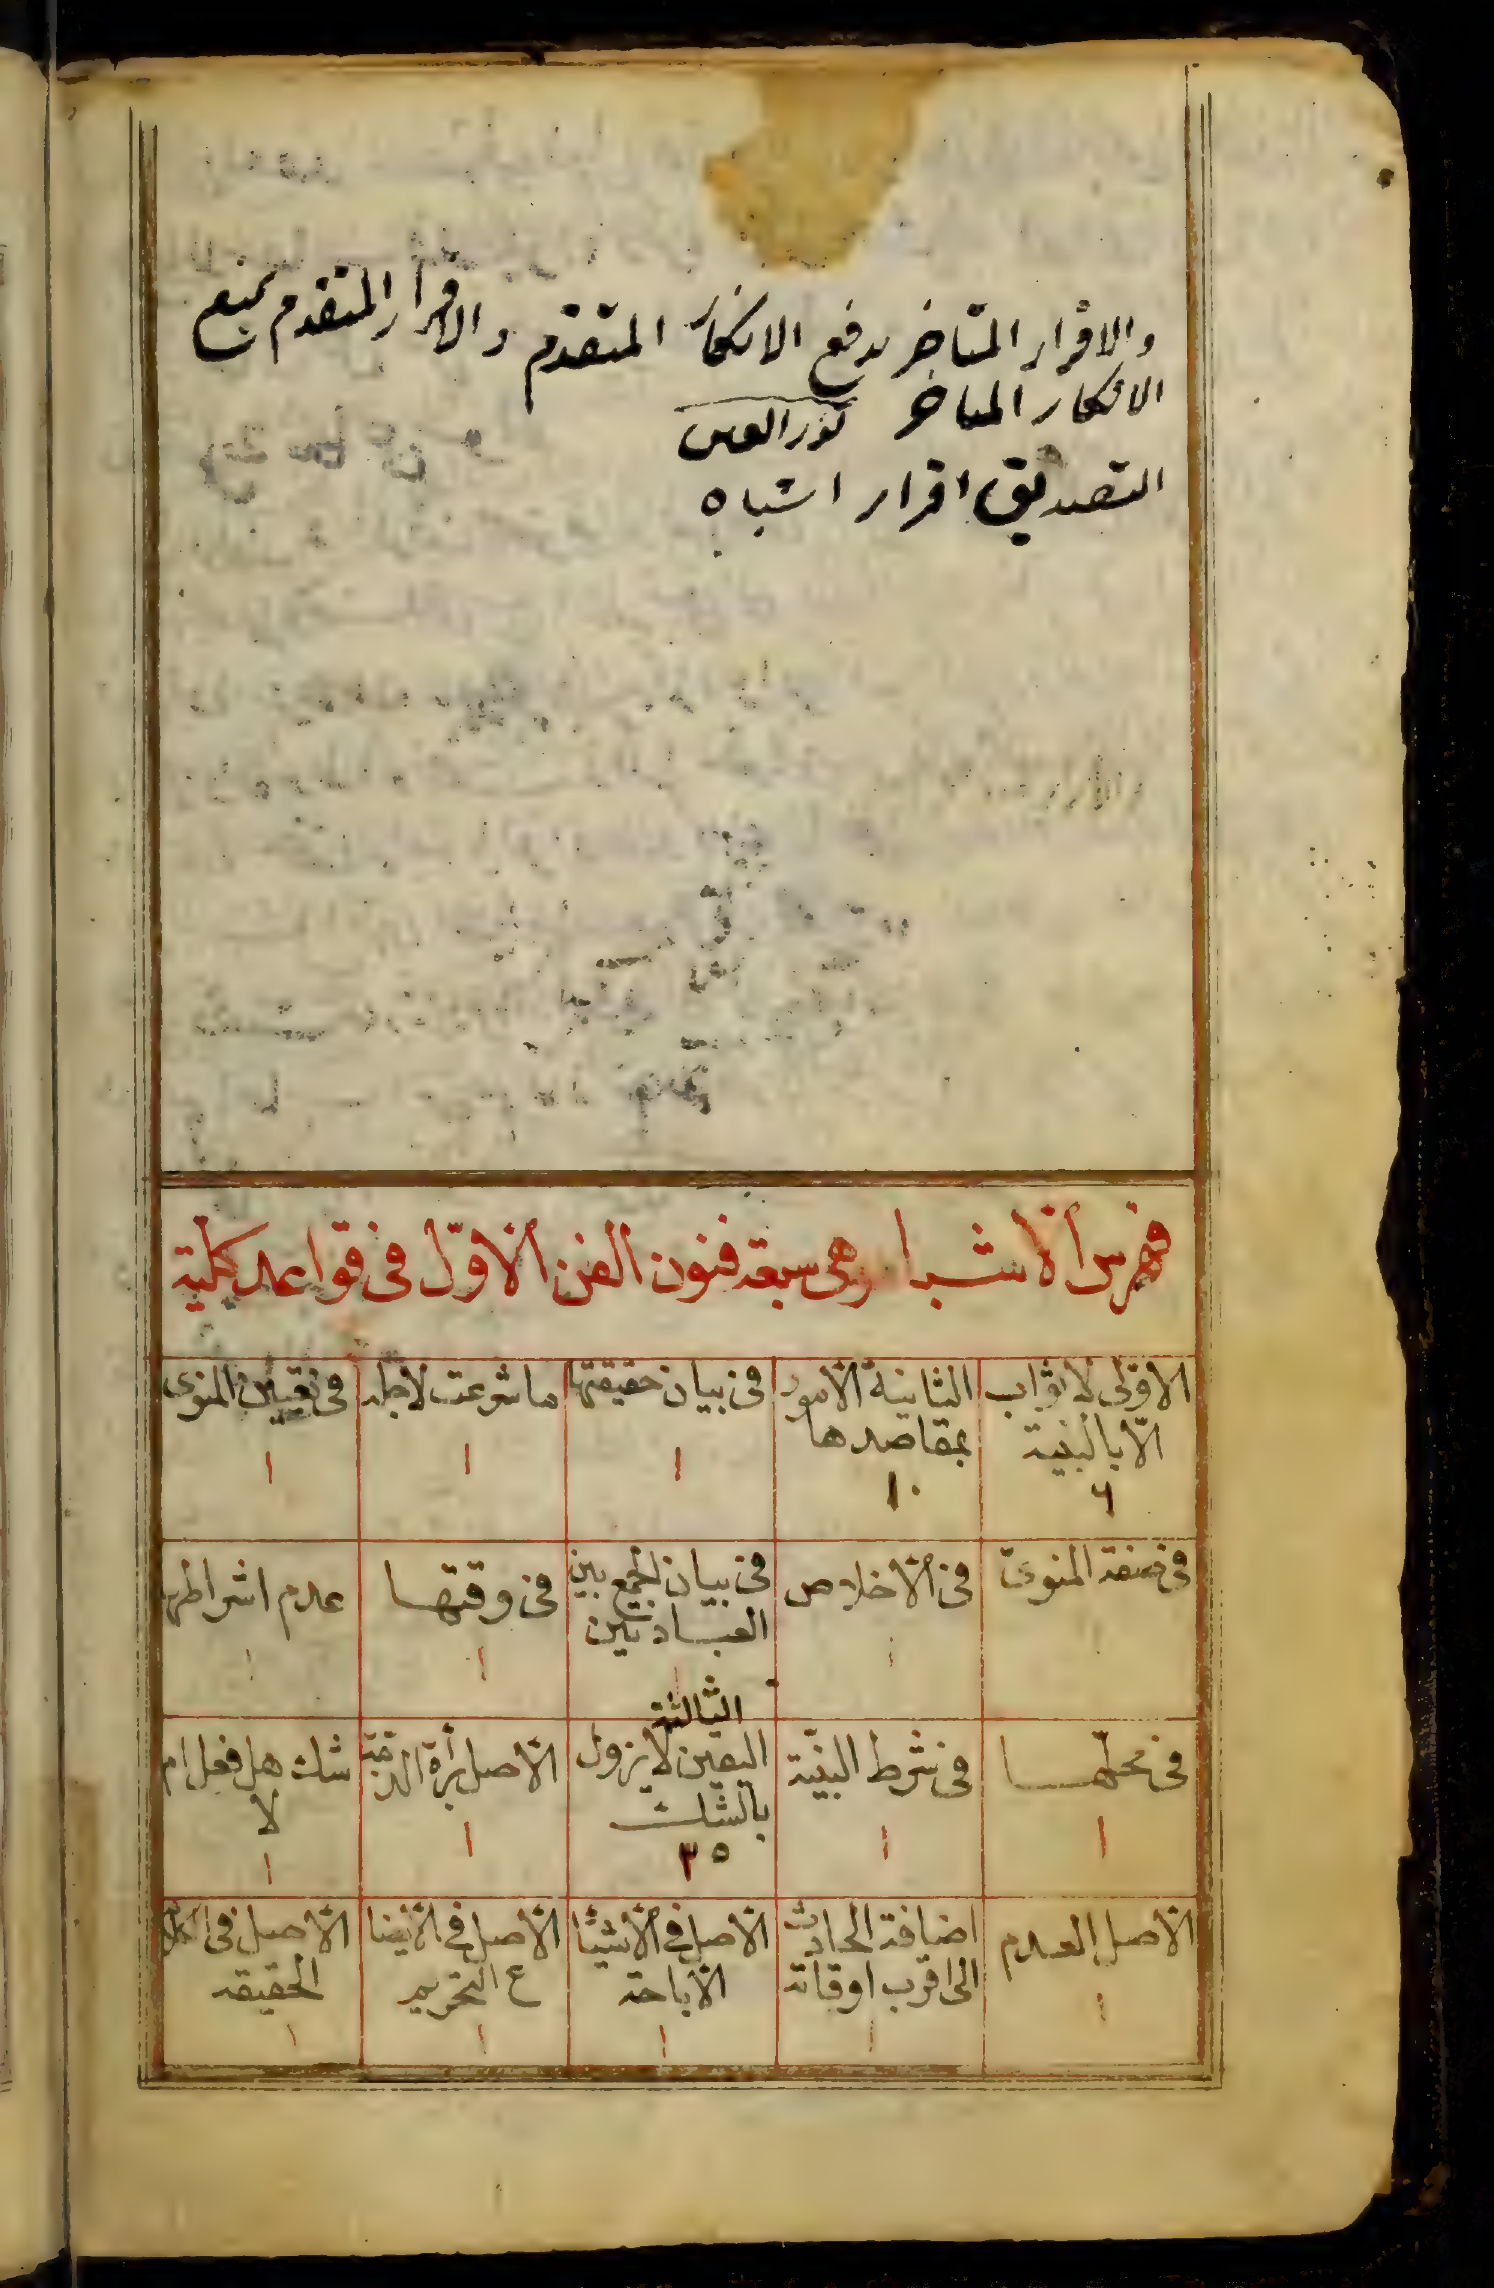 والاقرار المتاخر يدفع الانكار المتقدم والاقرار المتقدم يمنع
الانكار المتاخر نور العين
التصديق اقرار اشباه
فهرس الاشباه وهى سبعة فنون الفن الاوّل فى قواعد كلية
الاولى لا ثواب
الّا بالنية
٦
الثانية الامور
بمقاصدها
١٠
فى بيان حقيقتها
١
ما شرعت لاجله
١
فى تعيين المنوى
١
فى صفة المنوىّ
١
فى الاخلاص
١
فى بيان الجمع بين
العبادتين
١
فى وقتها
١
عدم اشتراطها
١
فى محلّها
١
فى شرط النيّة
١
الثالثة
اليقين لا يزول
بالشك
٣٥
الاصل برأة الذمّة
١
شك هل فعل ام
لا
١
الاصل العدم
١
اضافة الحادث
الى اقرب اوقاته
١
الاصل فى الاشيا
الاباحة
١
الاصل فى الابضا
ع التحريم
١
الاصل فى الكلام
الحقيقه
١